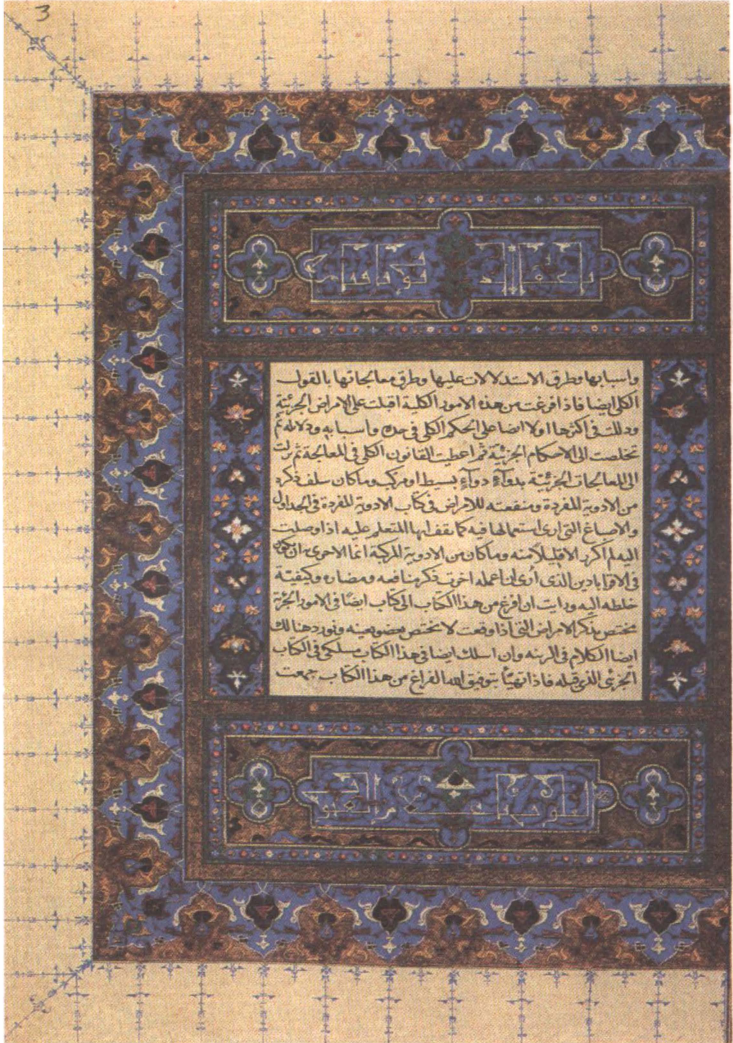 3
واسبابها وطرق الاستدلالات عليها وطرق معالجاتها بالقول
الكلى ايضا فاذا فرغت من هذه الامور الكلية اقبلت على الامراض الجزئية
ودللت فى اكثرها اولا ايضا على الحكم الكلى فى حده واسبابه ودلائله ثم
تخلصت الى الاحكام الجزئية ثم اعطيت القانون الكلى فى المعالجة ثم نزلت
الى المعالجات الجزئية بدوآء دوآء بسيط او مركب وما كان سلف ذكره
من الادوية المفردة ومنفعته للامراض فى كتاب الادوية المفردة فى الجداول
والاصباغ التى ارى استعمالها فيه كما تقف ايها المتعلم عليه اذا وصلت
اليه لم اكرر الا قليلا منه وما كان من الادوية المركبة انما الاحرى به ان يكون
فى الاقراباذين الذى أرى ان اعمله اخرت ذكر منافعه ومضاره وكيفية
خلطه اليه ورايت ان افرغ من هذا الكتاب الى كتاب ايضا فى الامور الجزئية
مختص بذكر الامراض التى اذا وقعت لا تختص بعضو بعينه ونورد هنالك
ايضا الكلام فى الزينة وان اسلك ايضا فى هذا الكتاب مسلكى فى الكتاب
الجزئى الذى قبله فاذا تهيأ بتوفيق الله الفراغ من هذا الكتاب جمعت